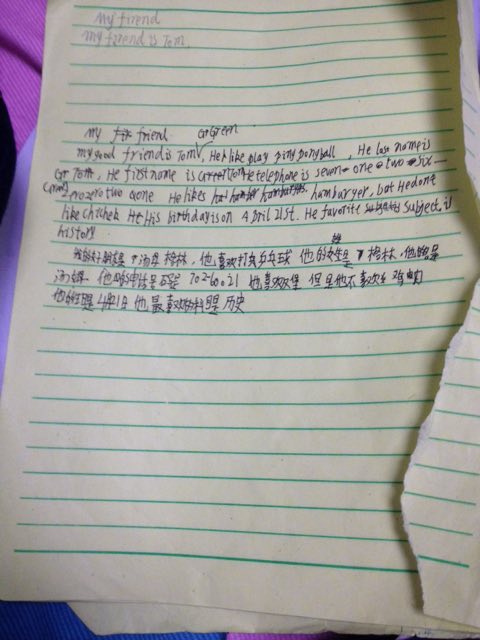 My friend
My friend is Tom.
My friend
Green
my good friend is Tom, He like play ping pong ball, He last name is
Tom, He first name is Tom He telephone is seven one two six
zero two one He likes hamburger, but He dont
like chicken He His birthday is on April 21st. He favorite subject is
history
我的好朋友是汤姆格林，他喜欢打乒乓球 他的姓是格林，他的名是
汤姆 他的电话是 702-6021 他喜欢汉堡 但是他不喜欢吃鸡肉
他的生日是4月21日 他最喜欢的科目是历史